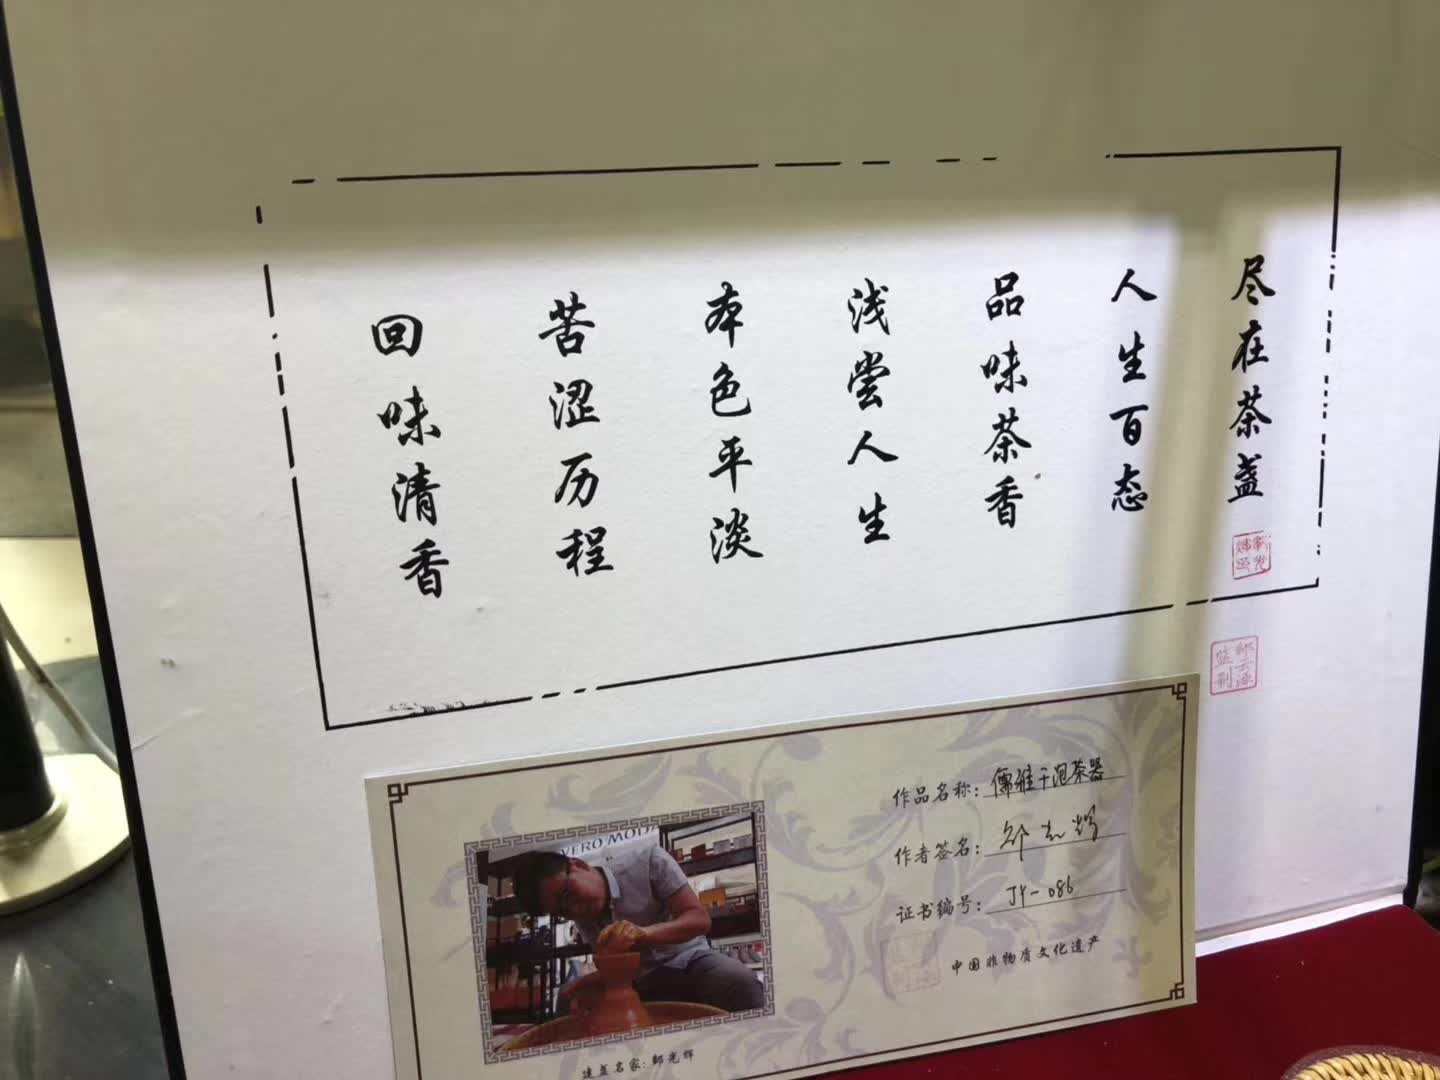 回味清香
苦涩历程
本色平淡
浅尝人生
品味茶香
人生百态
尽在茶盏
VERO MODA
作品名称：儒雅干泡茶器
作者签名：
证书编号：JY-086
中国非物质文化遗产
建盏名家：